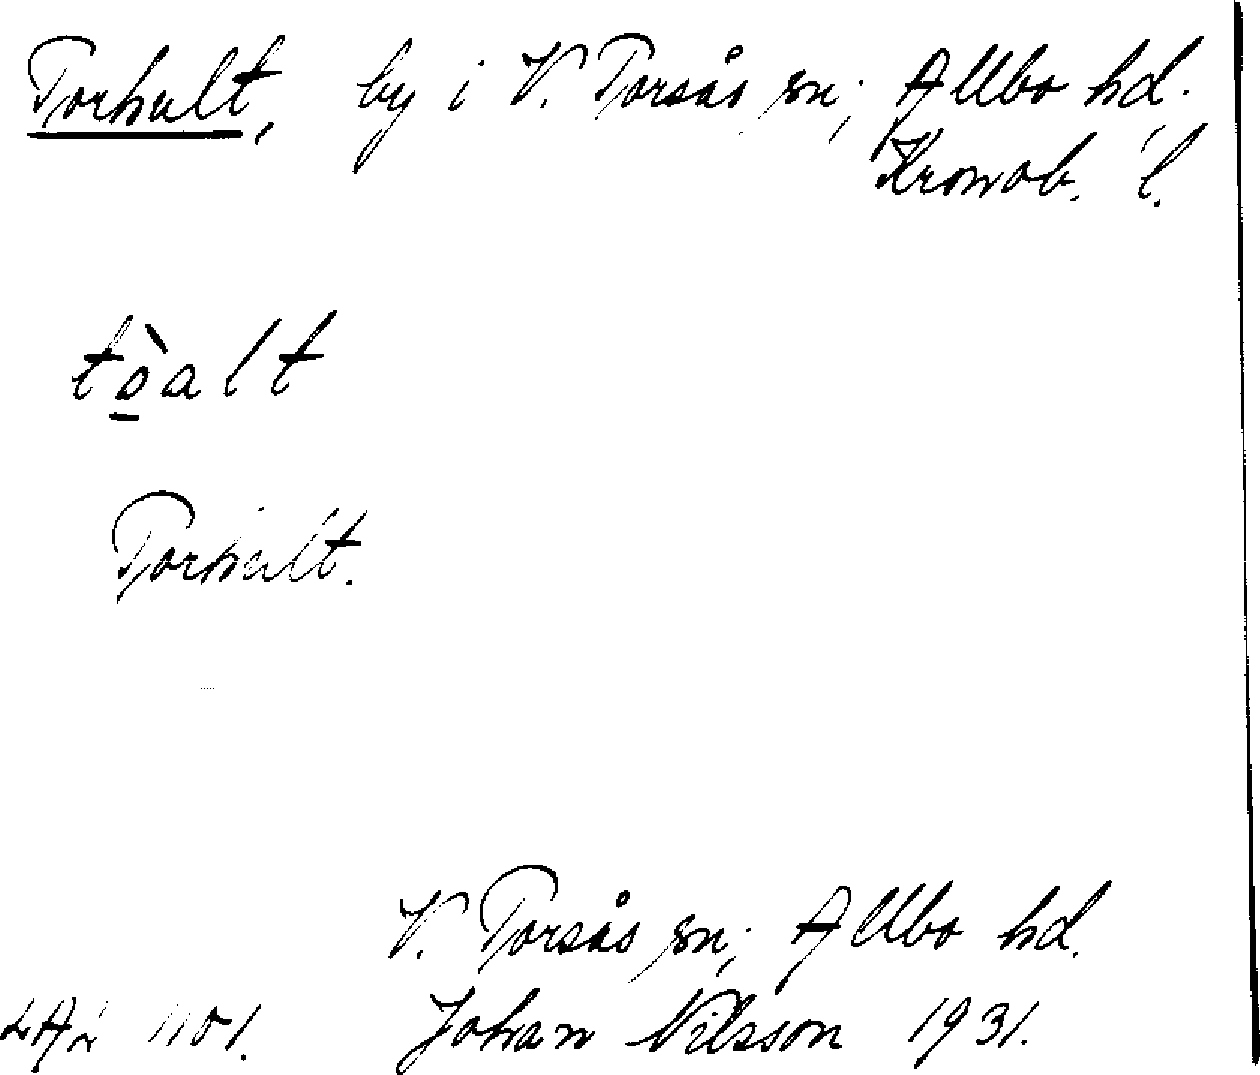 Torhult, by i V. Torsås sn; Allbo hd.
Kronob. l.
tò̲alt
Torhult.
V. Torsås sn; Allbo hd.
Johan Nilsson 1931.